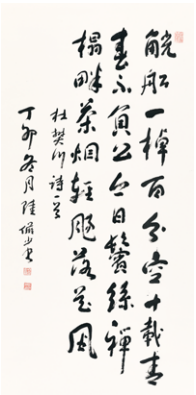 觥船一棹百分空十载青
春不负公今日鬓丝禅
榻畔茶烟轻飏落花风
杜樊川诗一首
丁卯冬月陆俨少书